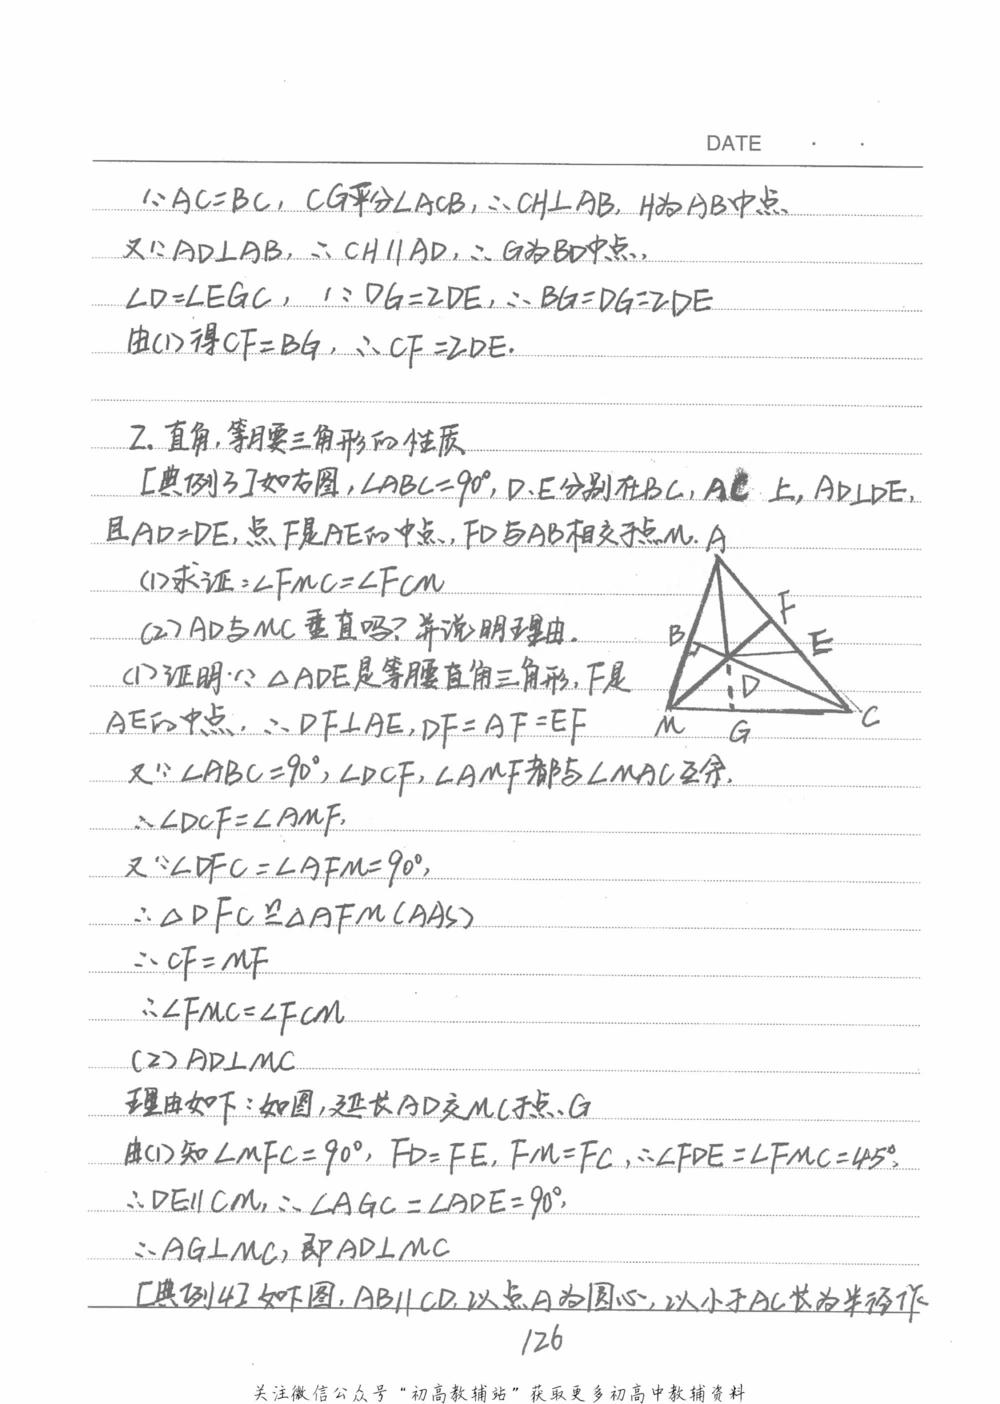 DATE · ·
∵AC=BC, CG平分∠ACB, ∴CH⊥AB, H为AB中点
又∵AD⊥AB, ∴CH∥AD, ∴G为BD中点,
∠D=∠EGC, ∵DG=2DE, ∴BG=DG=2DE
由(1)得CF=BG, ∴CF=2DE.
2. 直角,等腰三角形的性质
[典例3]如右图,∠ABC=90°, D、E分别在BC, AC 上, AD⊥DE,
且AD=DE,点F是AE的中点, FD与AB相交于点M.
(1)求证:∠FMC=∠FCM
(2)AD与MC垂直吗?并说明理由.
(1)证明:∵△ADE是等腰直角三角形, F是
AE的中点, ∴DF⊥AE, DF=AF=EF
又∵∠ABC=90°, ∠DCF, ∠AMF都与∠MAC互余,
∴∠DCF=∠AMF,
又∵∠DFC=∠AFM=90°,
∴△DFC≌△AFM(AAS)
∴CF=MF
∴∠FMC=∠FCM
(2)AD⊥MC
理由如下:如图,延长AD交MC于点G
由(1)知∠MFC=90°, FD=FE, FM=FC, ∴∠FDE=∠FMC=45°,
∴DE∥CM, ∴∠AGC=∠ADE=90°,
∴AG⊥MC, 即AD⊥MC
[典例4]如下图, AB∥CD,以点A为圆心,以小于AC长为半径作
A
F
B
E
D
M
G
C
126
关注微信公众号“初高教辅站”获取更多初高中教辅资料